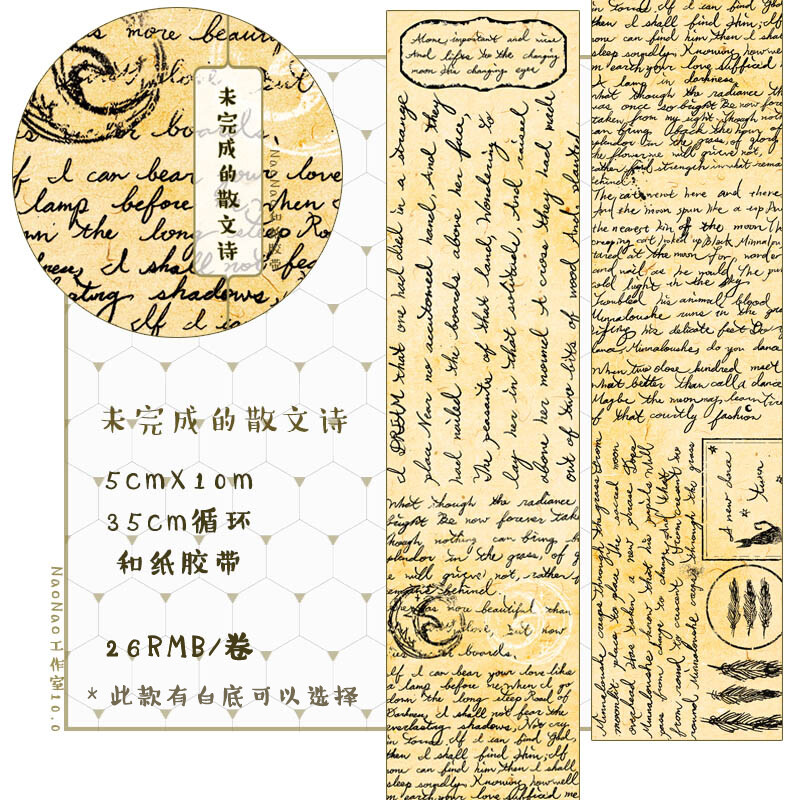 is more beauti
love but
er boards.
f I can bear your love
lamp before me, when I
wn the long steep Road
I shall not fear
lasting shadows,
If I can
未完成的散文诗
NaoNao和纸胶带
未完成的散文诗
5cmX10m
35cm循环
和纸胶带
26RMB/卷
*此款有白底可以选择
NaoNao工作室10.0
Alone, important and wise
And lifts to the changing
moon his changing eyes
I DREAM that one had died in a strange
place Near no accustomed hand And they
had nailed the boards above her face,
The peasants of that land, Wondering to
lay her in that solitude, And raised
above her mound A cross they had made
out of two bits of wood And planted
What though the radiance
bright Be now forever take
hough, nothing can bring b
splendor in the grass, of g
e will grieve not, rather f
emaint behind.
was more beautiful than
love, but now
ies er boards.
If I can bear your love like
a lamp before me, when I go
down the long steep Road of
Darkness, I shall not fear the
everlasting shadows, Nor cry
in Terror. If I can find God
then I shall find Him; If
none can find him then I shall
sleep soundly Knowing how well
on earth your love sufficed me
in Terror. If I can find God
then I shall find Him; If
none can find him then I shall
sleep soundly Knowing how well
on earth your love sufficed m
A lamp in darkness.
What though the radiance th
was once so bright Be now fore
taken from my sight, Though noth
can bring back the hour of
splendor in the grass, of glory
the flower we will grieve not,
rather find strength in what remai
behind.
The cat went here and there
And the moon spun like a top
the nearest kin of the moon The
creeping cat, looked up Black Minnalou
stared at the moon for, wander
and wail as he would The pur
cold light in the sky
Troubled his animal blood
Minnaloushe runs in the gra
lifting his delicate feet Do yo
dance, Minnaloushe, do you danc
When two close kindred meet
what better than call a dance
Maybe the moon may learn tire
of that courtly fashion
Minnaloushe creeps through the grass From
moonlit place to place The sacred moon
overhead Has taken a new phase Does
Minnaloushe know that his pupils Will
pass from change to change, And that
from round to crescent From crescent to
round Minnaloushe creeps through the grass
A new dance
turn